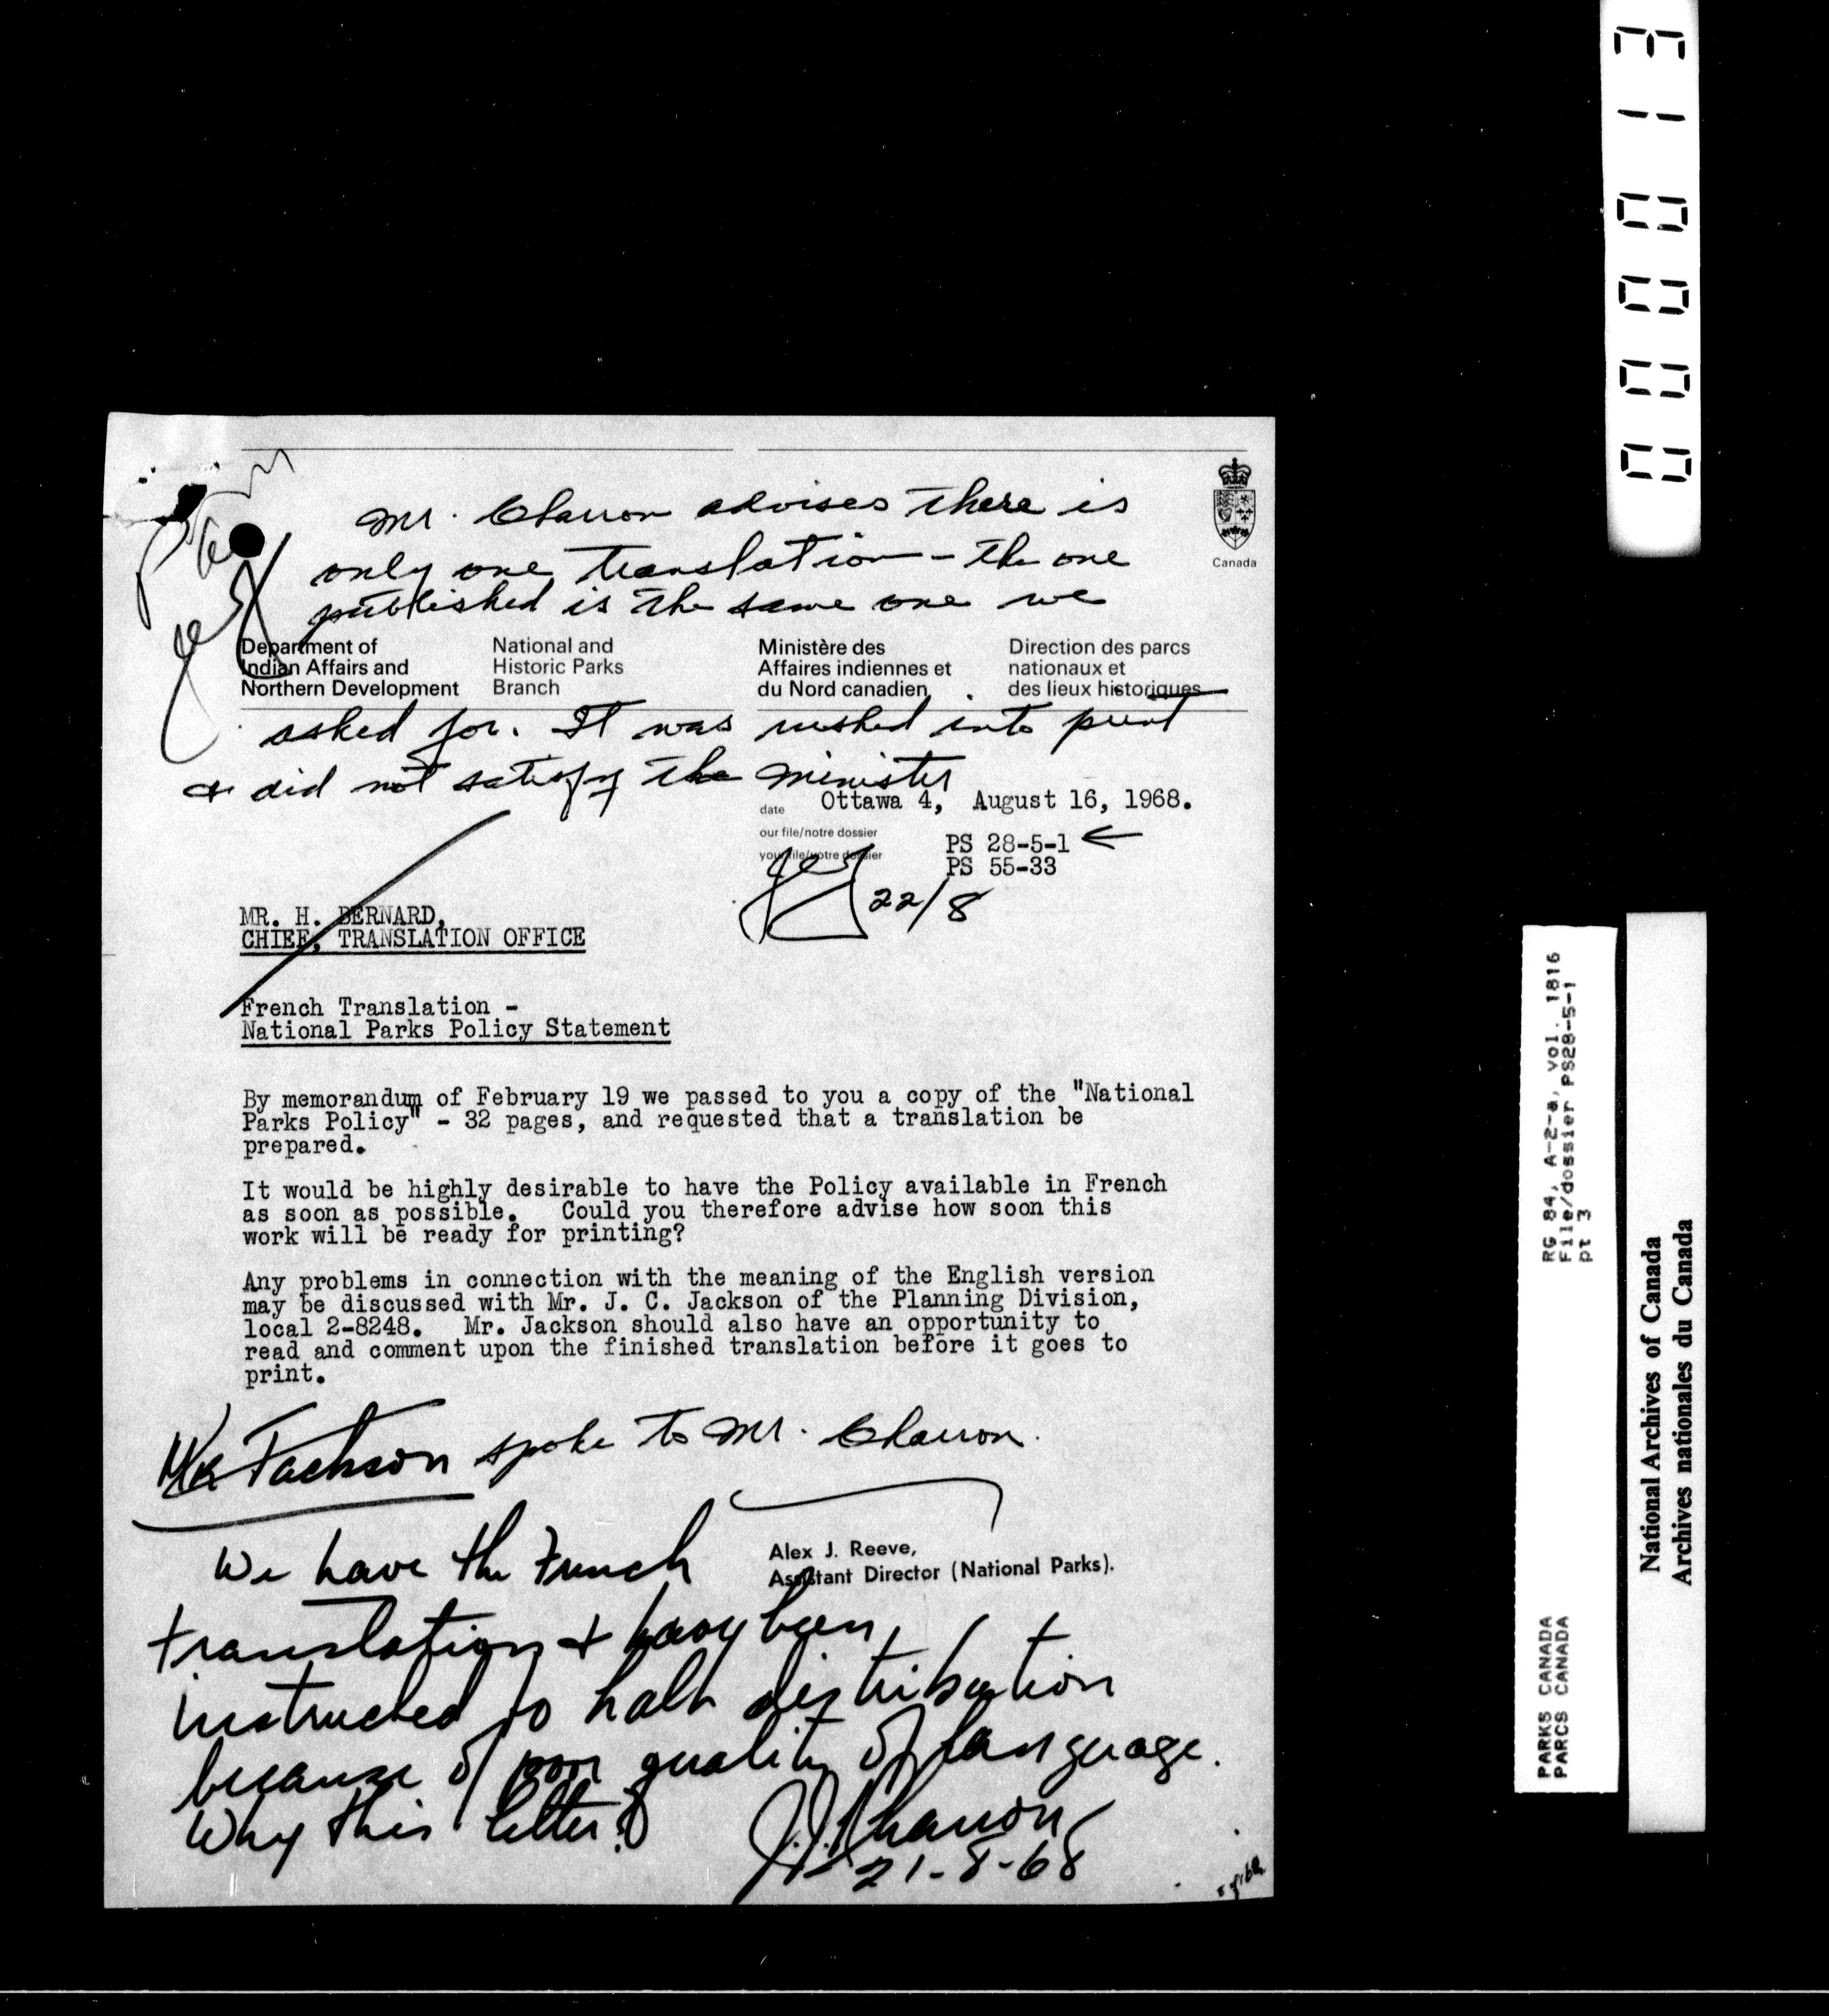 Mr. Charron advises there is
only one translation - the one
published is the same one we
Canada
Department of
Indian Affairs and
Northern Development
National and
Historic Parks
Branch
Ministère des
Affaires indiennes et
du Nord canadien
Direction des parcs
nationaux et
des lieux historiques
asked for. It was rushed into print
& did not satisfy the Minister
date Ottawa 4, August 16, 1968.
our file/notre dossier PS 28-5-1 ←
your file/votre dossier PS 55-33
22/8
MR. H. BERNARD,
CHIEF, TRANSLATION OFFICE
French Translation -
National Parks Policy Statement
By memorandum of February 19 we passed to you a copy of the "National
Parks Policy" - 32 pages, and requested that a translation be
prepared.
It would be highly desirable to have the Policy available in French
as soon as possible. Could you therefore advise how soon this
work will be ready for printing?
Any problems in connection with the meaning of the English version
may be discussed with Mr. J. C. Jackson of the Planning Division,
local 2-8248. Mr. Jackson should also have an opportunity to
read and comment upon the finished translation before it goes to
print.
Mr Jackson spoke to Mr. Charron.
Alex J. Reeve,
Assistant Director (National Parks).
We have the French
translation & have been
instructed to halt distribution
because of poor quality of language.
Why this letter?
J.J. Charron
21-8-68
RG 84, A-2-a, vol. 1816
File/dossier PS28-5-1
pt 3
PARKS CANADA
PARCS CANADA
National Archives of Canada
Archives nationales du Canada